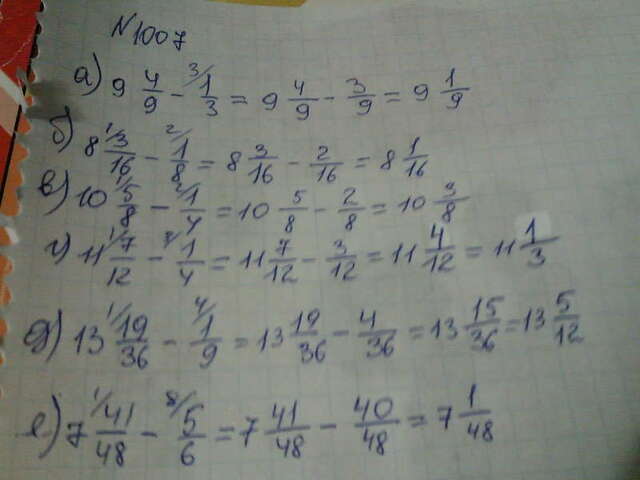 N1007
а) 9 4/9 - 3/1/3 = 9 4/9 - 3/9 = 9 1/9
б) 8 1/3/16 - 2/1/8 = 8 3/16 - 2/16 = 8 1/16
в) 10 1/5/8 - 2/1/4 = 10 5/8 - 2/8 = 10 3/8
г) 11 1/7/12 - 3/1/4 = 11 7/12 - 3/12 = 11 4/12 = 11 1/3
д) 13 1/19/36 - 4/1/9 = 13 19/36 - 4/36 = 13 15/36 = 13 5/12
е) 7 1/41/48 - 8/5/6 = 7 41/48 - 40/48 = 7 1/48